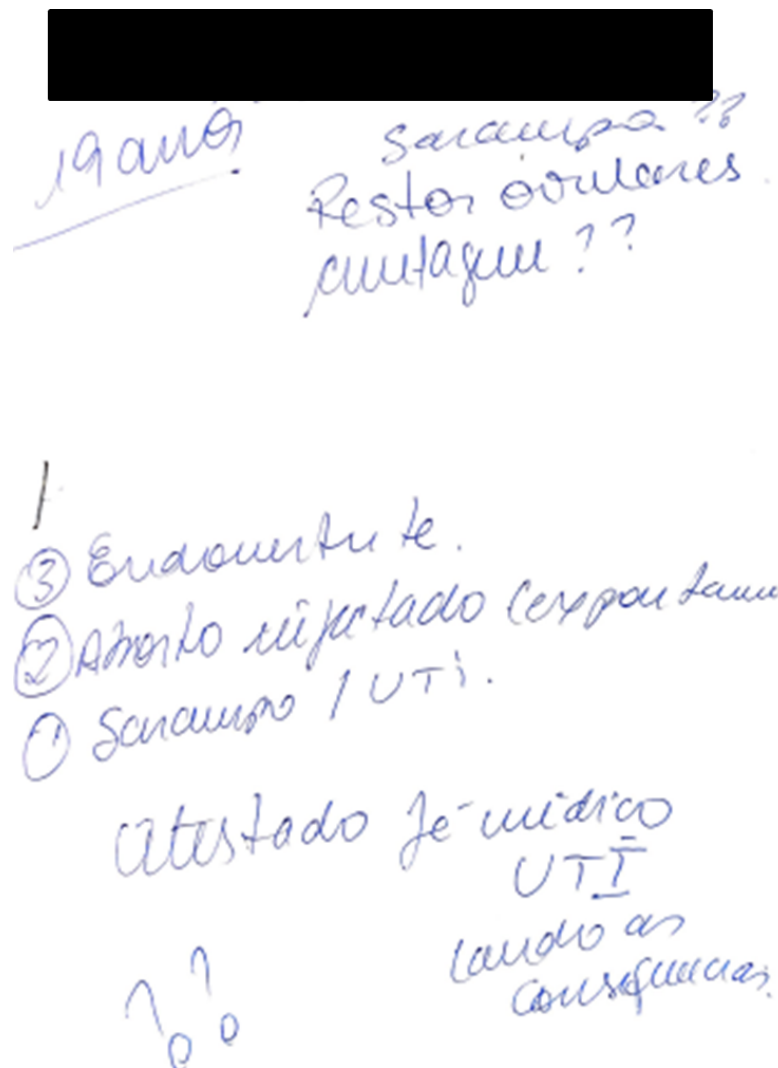 19 anos
Sarampo ??
Restos ovulares.
curetagem ??
③ Endometrite.
② Aborto infectado (espontaneo
① Sarampo / UTI.
Atestado fé médico
UTI
laudo as
consequencias.
??